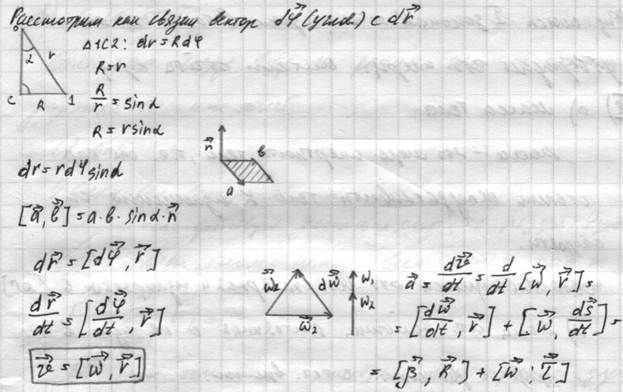 Рассмотрим как связан вектор d\vec{φ} (углов.) с d\vec{r}
o
α
r
C
R
1
Δ1C2: dr = Rdφ
R=r
R/r = sinα
R = r sinα
dr = r dφ sinα
\vec{n}
b
a
[\vec{a}, \vec{b}] = a·b·sinα·\vec{n}
d\vec{r} = [d\vec{φ}, \vec{r}]
d\vec{r}/dt = [d\vec{φ}/dt, \vec{r}]
\vec{v} = [\vec{w}, \vec{r}]
\vec{w}_2
d\vec{w}
\vec{w}_2
w_1
w_2
\vec{a} = d\vec{v}/dt = d/dt [\vec{w}, \vec{r}] =
= [d\vec{w}/dt, \vec{r}] + [\vec{w}, d\vec{s}/dt] =
= [\vec{β}, \vec{R}] + [\vec{w}, \vec{v}]